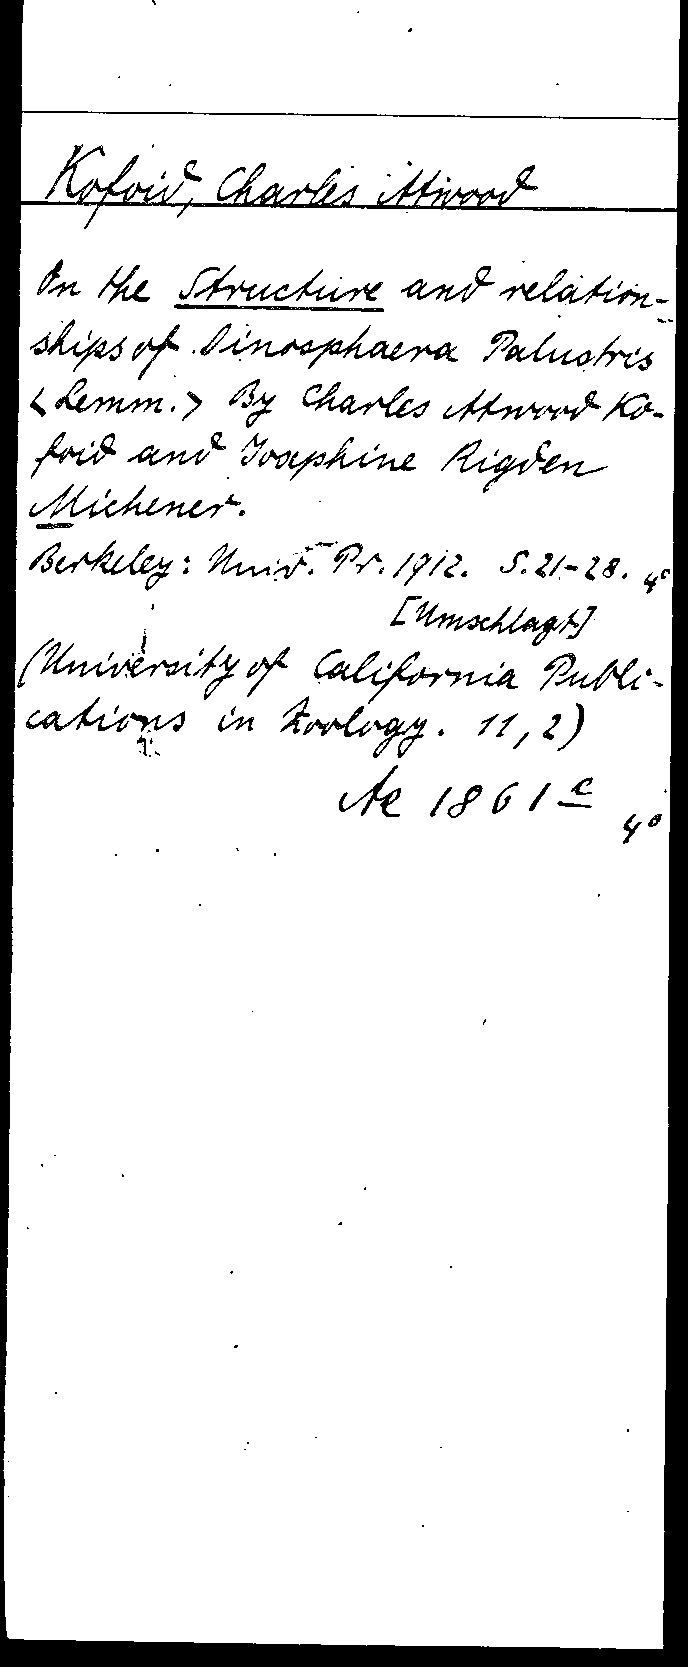 Kofoid, Charles Attwood
On the Structure and relation-
ships of Dinosphaera Palustris
<Lemm.> By Charles Attwood Ko-
foid and Josephine Rigden
Michener.
Berkeley: Univ. Pr. 1912. S. 21-28. 4°
[Umschlagt.]
(University of California Publi-
cations in Zoology. 11, 2)
Ae 1861 c 4°